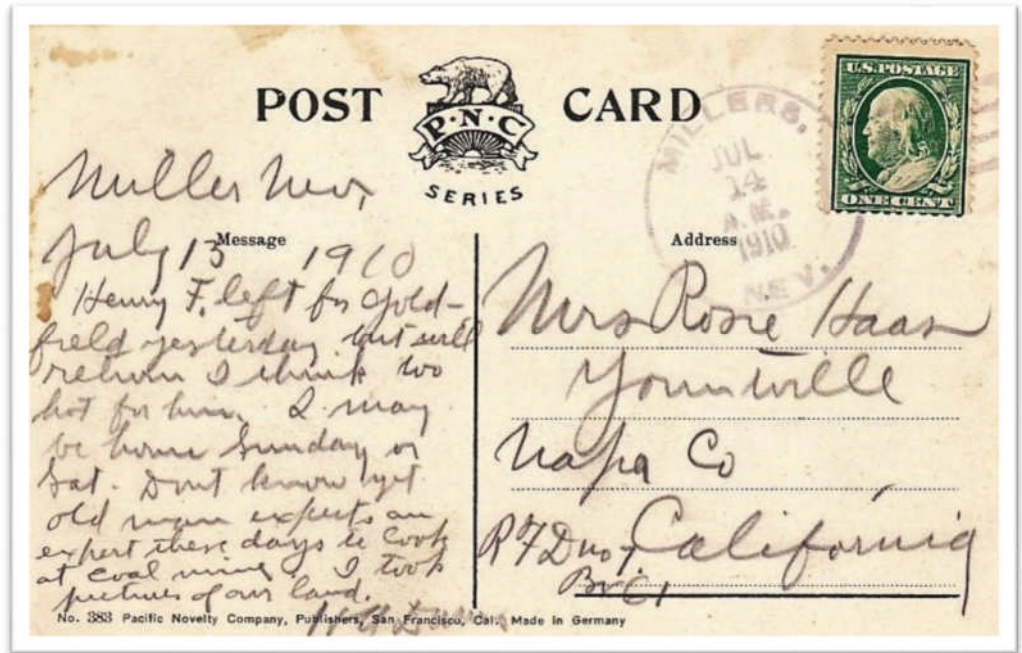 POST CARD
P·N·C
SERIES
U.S. POSTAGE
ONE CENT
MILLERS,
JUL
14
A.M.
1910
NEV.
Miller Nev,
Message
July 13 1910
Henry F. left for Gold-
field yesterday but will
return I think too
hot for him. I may
be home Sunday or
Sat. Dont know yet
old man expects an
expert these days to look
at coal mine. I took
pictures of our land.
Address
Mrs Rosie Haas
Yountville
Napa Co
California
R F D no
Bx 61
No. 383 Pacific Novelty Company, Publishers, San Francisco, Cal. Made in Germany